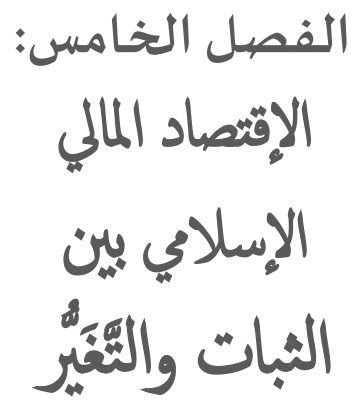 الفصل الخامس:
الإقتصاد المالي
الإسلامي بين
الثبات والتَّغَيُّر